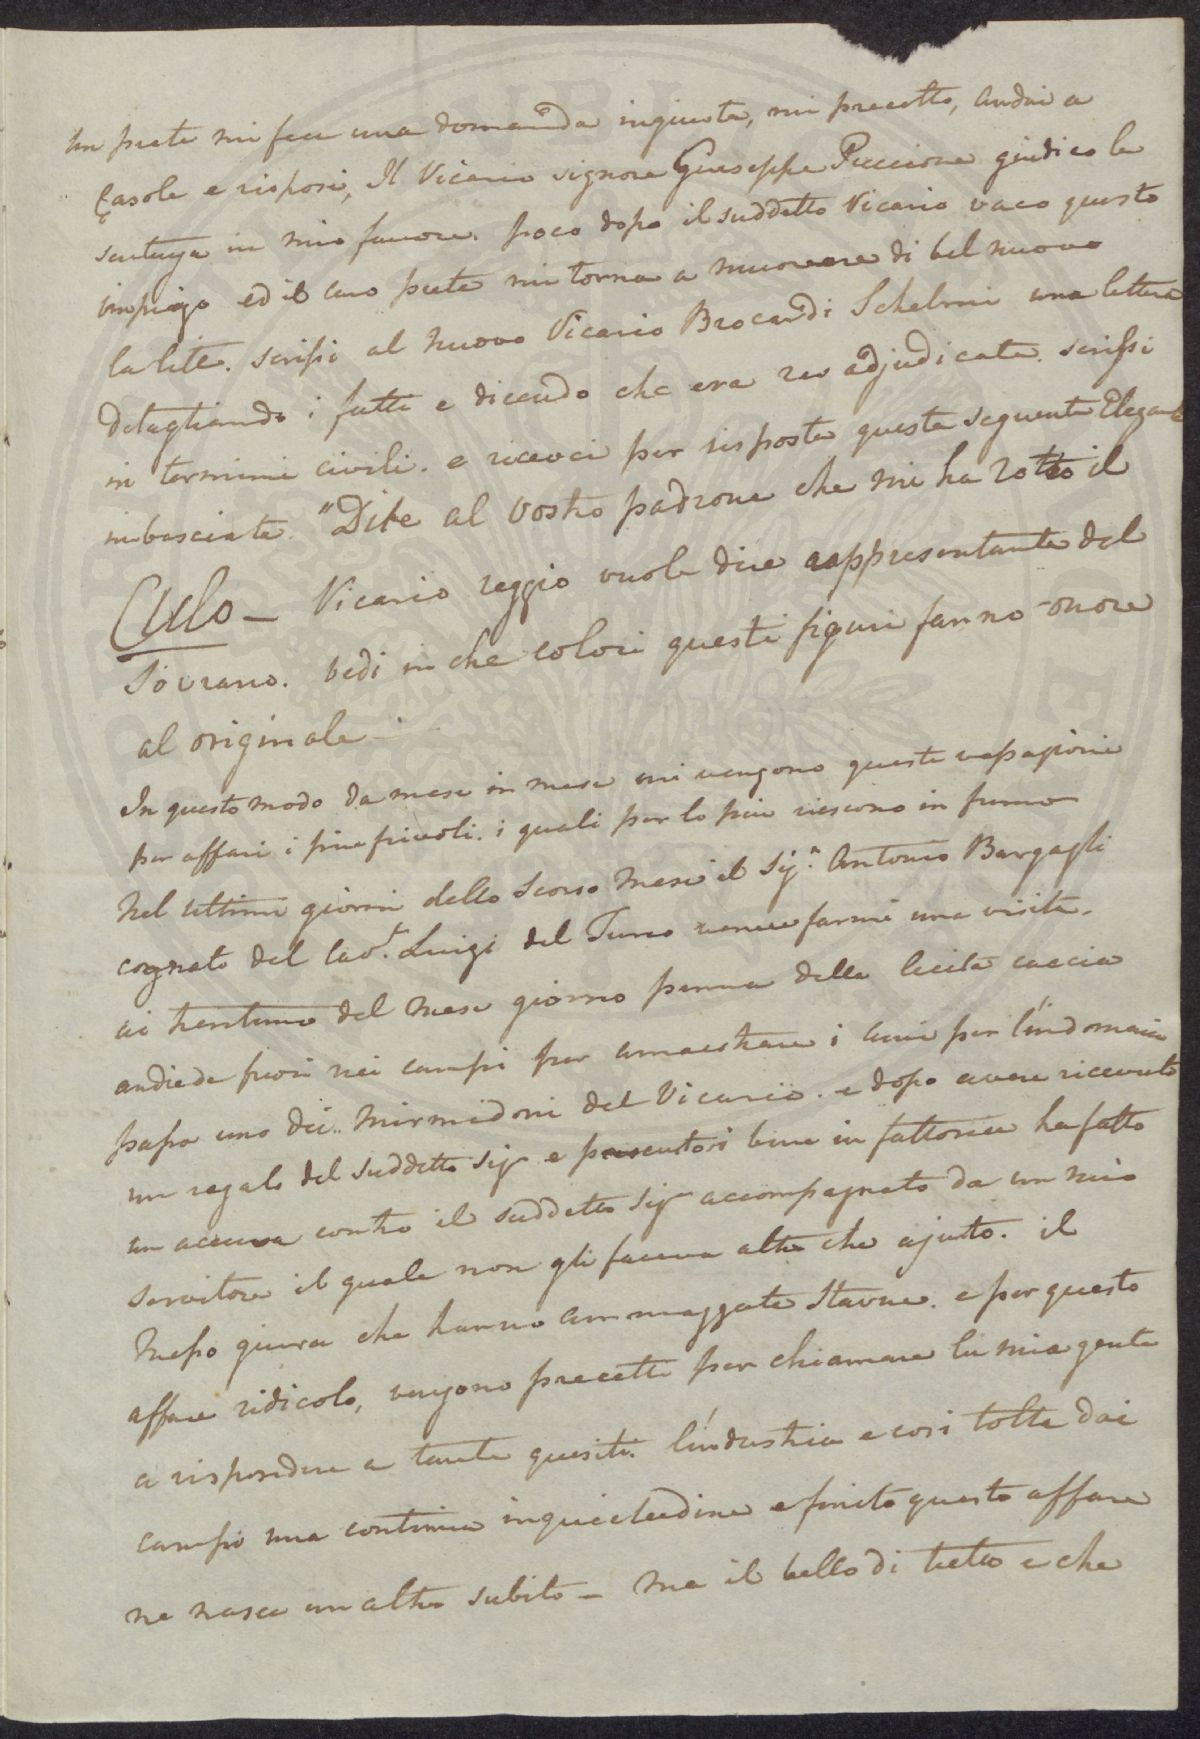 un prete mi fece una domanda ingiusta, mi precetto, andai a
Casole e risposi, Il Vicario signore Giuseppe Puccione giudico la
sentenza in mio favore. poco dopo il suddetto Vicario vaco questo
impiego ed il caro prete mi torna a muovere di bel nuovo
la lite. scrissi al nuovo Vicario Brocardi Schelmi una lettera
detagliando i fatti e dicendo che era res adjudicata. scrissi
in termini civili. e ricevei per risposta questa seguente Elegante
imbasciata. "Dite al vostro padrone che mi ha rotto il
Culo — Vicario reggio vuole dire rappresentante del
Sovrano. vedi in che colori questi figuri fanno onore
al originale —
In questo modo da mese in mese mi vengono queste vessazioni
per affari i piu frivoli. i quali per lo piu riescono in fumo
Nel ultimi giorni dello scorso mese il Sigr. Antonio Bargagli
cognato del Cavr. Luigi del Turco venne farmi una visita.
ai trentuno del mese giorno prima della lecita caccia
andiede fuori nei campi per amaestrare i cani per l'indomain
passa uno dei mirmidoni del Vicario. e dopo avere ricevuto
un regalo del suddetto Sigr e presentosi bene in fattoria ha fatto
un accusa contro il suddetto Sigr accompagnato da un mio
servitore il quale non gli faceva altro che ajuto. il
Messo giura che hanno ammazzato Starne. e per questo
affare ridicolo, vengono precetti per chiamare la mia gente
a rispondere a tante quesiti. l'industria e cosi tolta dai
campi una continua inquietudine e finito questo affare
ne nasce un altro subito — ma il bello di tutto e che